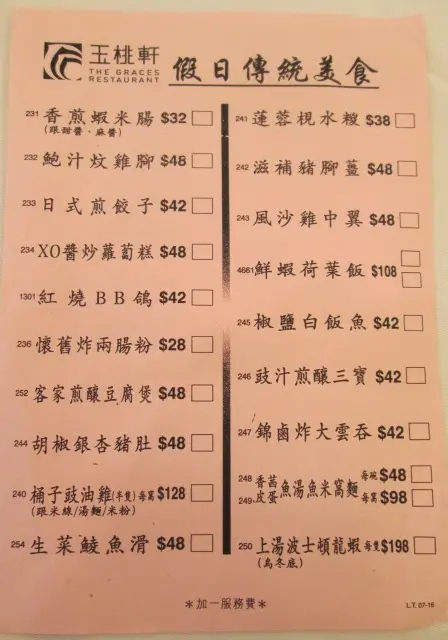 玉桃軒
THE GRACES
RESTAURANT
假日傳統美食
231 香煎蝦米腸 $32
(跟甜醬、麻醬)
232 鮑汁炆雞腳 $48
233 日式煎餃子 $42
234 XO醬炒蘿蔔糕 $48
1301 紅燒BB鴿 $42
236 懷舊炸兩腸粉 $28
252 客家煎釀豆腐煲 $48
244 胡椒銀杏豬肚 $48
240 桶子豉油雞(半隻)每窩 $128
(跟米線/湯麵/米粉)
254 生菜鯪魚滑 $48
241 蓮蓉梘水糭 $38
242 滋補豬腳薑 $48
243 風沙雞中翼 $48
4661 鮮蝦荷葉飯 $108
245 椒鹽白飯魚 $42
246 豉汁煎釀三寶 $42
247 錦鹵炸大雲吞 $42
248 香茜魚湯魚米窩麵 每碗 $48
249 皮蛋 每窩 $98
250 上湯波士頓龍蝦 每隻 $198
(烏冬底)
*加一服務費*
L.T. 07-16